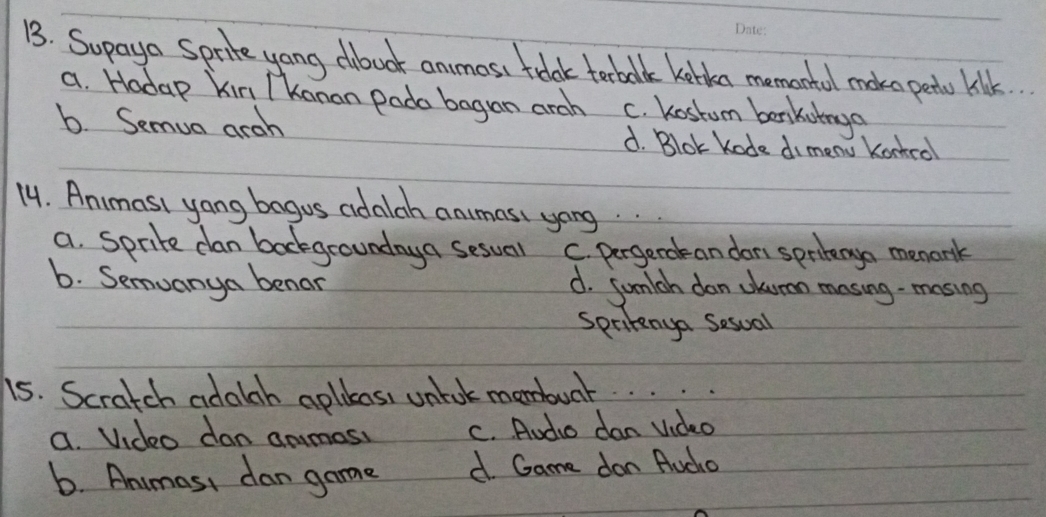 Date:
13. Supaya Sprite yang dibuat animasi tidak terbalik ketika memantul maka perlu klik...
a. Hadap kiri / kanan pada bagian arah c. kostum berikutnya
b. Semua arah
d. Blok kode di menu Kontrol
14. Animasi yang bagus adalah animasi yang ....
a. Sprite dan backgroundnya sesuai c. pergerakan dari spritenya menarik
b. Semuanya benar d. Jumlah dan ukuran masing-masing
Spritenya Sesuai
15. Scratch adalah aplikasi untuk membuat .....
a. Video dan animasi c. Audio dan video
b. Animasi dan game d. Game dan Audio